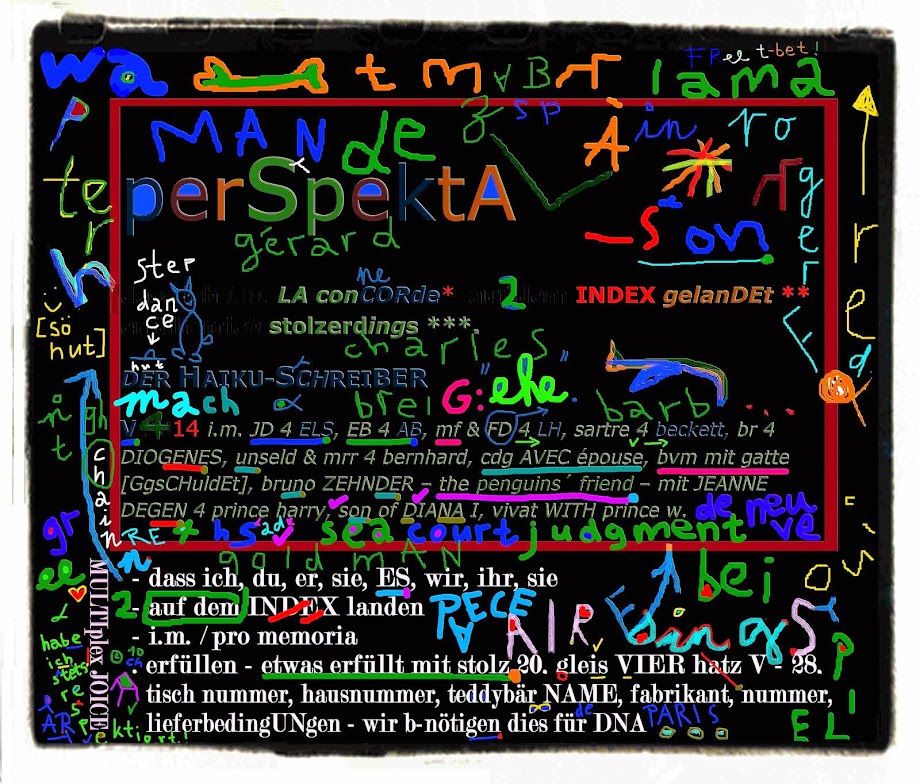 wa t m v B r lama
FReet-bet!
MANde
sp
A in ro
perSpektA
gérard
-S on
ger
step
dan
ce
hut
ne
LA conCORde* 2 INDEX gelanDEt **
stolzerdings ***.
charles
[sö
hut]
DER HAIKU-SCHREIBER
mach brei G: "ehe" barb...
V 4 14 i.m. JD 4 ELS, EB 4 AB, mf & FD 4 LH, sartre 4 beckett, br 4
DIOGENES, unseld & mrr 4 bernhard, cdg AVEC épouse, bvm mit gatte
[GgsCHuldEt], bruno ZEHNDER – the penguins´ friend – mit JEANNE
DEGEN 4 prince harry, son of DIANA I, vivat WITH prince w. de neu
ve
RE * hs 2d sea court judgment
gold mAN
chain
- dass ich, du, er, sie, ES, wir, ihr, sie
bei
- auf dem INDEX landen
2
PECE
AIR
Sings
- i.m. / pro memoria
- erfüllen - etwas erfüllt mit stolz 20. gleis VIER hatz V - 28.
tisch nummer, hausnummer, teddybär NAME, fabrikant, nummer,
- lieferbedingUNgen - wir b-nötigen dies für DNA
de PARIS
MULTIplex JOICE
gr
ee
habe
ich
stets
re
s
p
ektiert!
ÄR
© 10
ch
P
EL